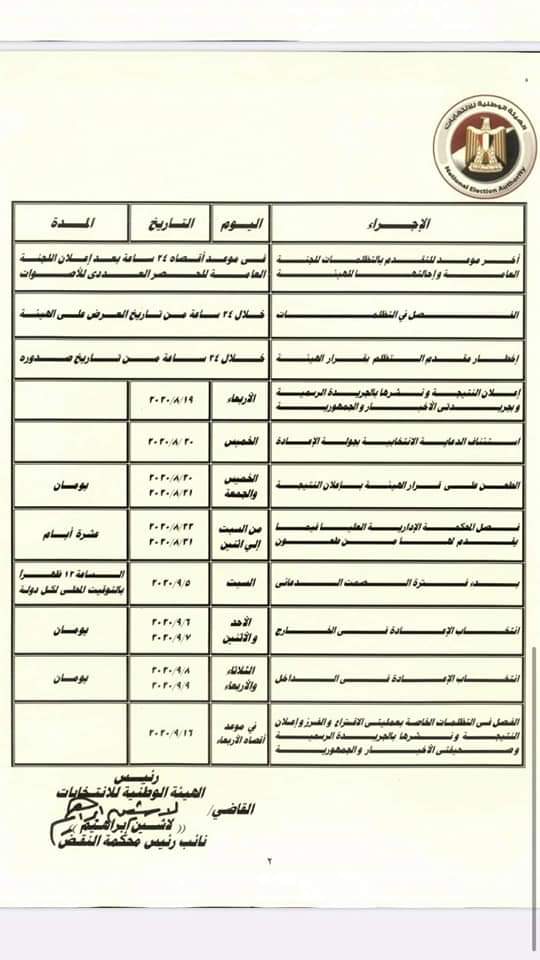 الهيئة الوطنية للانتخابات
National Election Authority
الإجراء
اليوم
التاريخ
المدة
أخر موعد للتقدم بالتظلمات للجنة
العامة وإحالتها للهيئة
فى موعد أقصاه ٢٤ ساعة بعد إعلان اللجنة
العامة للحصر العددى للأصوات
الفصل في التظلمات
خلال ٢٤ ساعة من تاريخ العرض على الهيئة
إخطار مقدم التظلم بقرار الهيئة
خلال ٢٤ ساعة من تاريخ صدوره
إعلان النتيجة ونشرها بالجريدة الرسمية
وبجريدتى الأخبار والجمهورية
الأربعاء
٢٠٢٠/٨/١٩
استئناف الدعاية الانتخابية بجولة الإعادة
الخميس
٢٠٢٠/٨/٢٠
الطعن على قرار الهيئة بإعلان النتيجة
الخميس
والجمعة
٢٠٢٠/٨/٢٠
٢٠٢٠/٨/٢١
يومان
فصل المحكمة الإدارية العليا فيما
يقدم لها من طعون
من السبت
إلي اثنين
٢٠٢٠/٨/٢٢
٢٠٢٠/٨/٣١
عشرة أيام
بدء فترة الصمت الدعائى
السبت
٢٠٢٠/٩/٥
الساعة ١٢ ظهراً
بالتوقيت المحلى لكل دولة
انتخاب الإعادة فى الخارج
الأحد
والأثنين
٢٠٢٠/٩/٦
٢٠٢٠/٩/٧
يومان
انتخاب الإعادة فى الداخل
الثلاثاء
والأربعاء
٢٠٢٠/٩/٨
٢٠٢٠/٩/٩
يومان
الفصل فى التظلمات الخاصة بعمليتى الاقتراع والفرز وإعلان
النتيجة ونشرها بالجريدة الرسمية
وصحيفتى الأخبار والجمهورية
في موعد
أقصاه الأربعاء
٢٠٢٠/٩/١٦
رئيس
الهيئة الوطنية للانتخابات
القاضي/
لاشين إبراهيم
(( لاشين إبراهيم ))
نائب رئيس محكمة النقض
٢